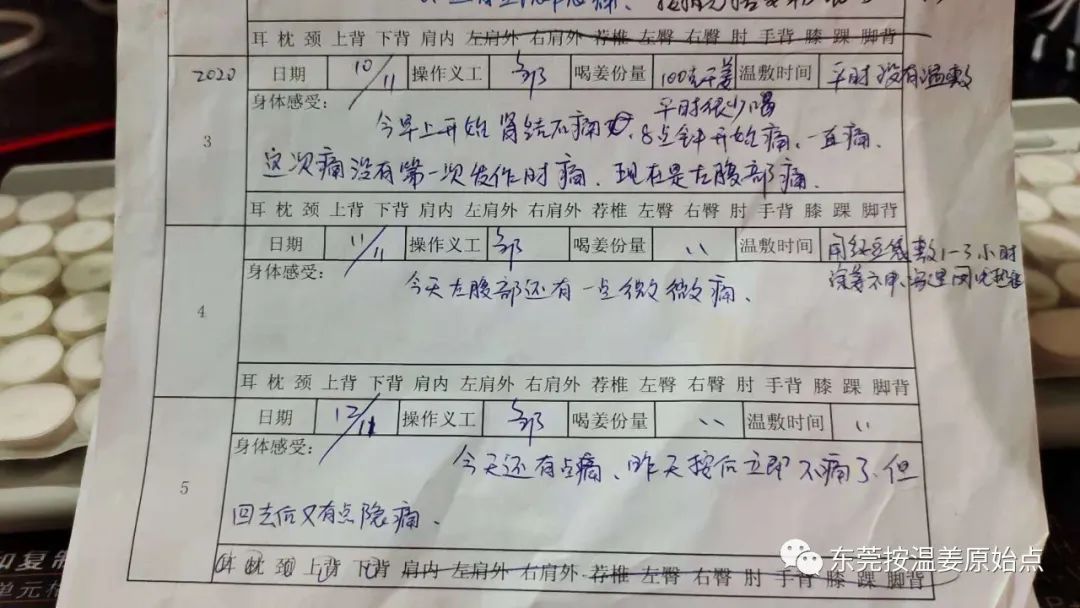 耳 枕 颈 上背 下背 肩内 左肩外 右肩外 荐椎 左臀 右臀 肘 手背 膝 踝 脚背
2020 日期 10/11 操作义工 邹 喝姜份量 100克干姜 温敷时间 平时没有温敷
身体感受: 平时很少喝
3 今早上开始肾结石痛, 8点钟开始痛、一直痛.
这次痛没有第一次发作时痛、现在是左腹部痛.
耳 枕 颈 上背 下背 肩内 左肩外 右肩外 荐椎 左臀 右臀 肘 手背 膝 踝 脚背
日期 11/11 操作义工 邹 喝姜份量 、、 温敷时间 用红豆袋敷1-3小时
身体感受: 今天左腹部还有一点微微痛.
4
耳 枕 颈 上背 下背 肩内 左肩外 右肩外 荐椎 左臀 右臀 肘 手背 膝 踝 脚背
日期 12/11 操作义工 邹 喝姜份量 、、 温敷时间 、、
身体感受: 今天还有点痛、昨天按后立即不痛了.但
5 回去后又有点隐痛.
耳 枕 颈 上背 下背 肩内 左肩外 右肩外 荐椎 左臀 右臀 肘 手背 膝 踝 脚背
和复制
单元格
东莞按温姜原始点